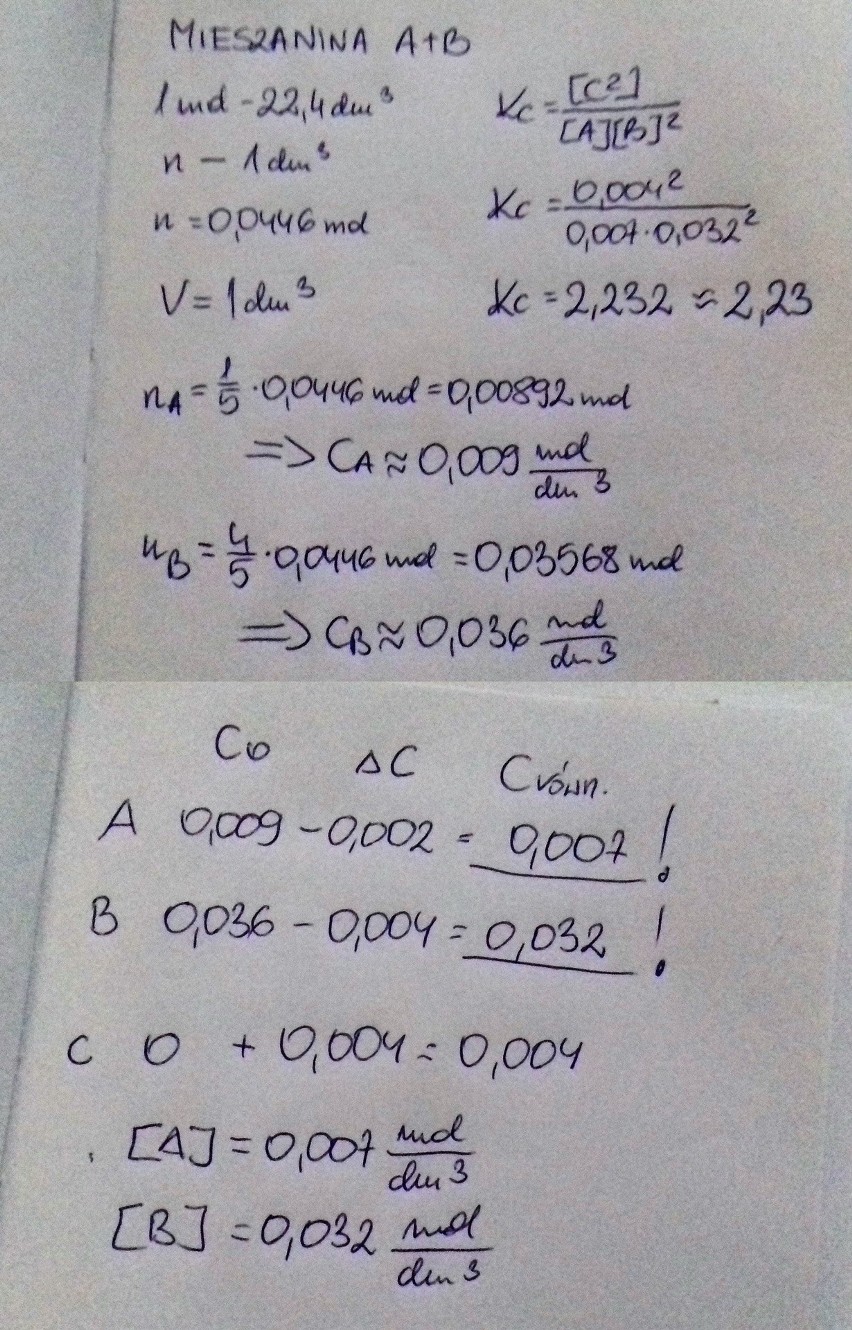 MIESZANINA A+B
1 mol - 22,4 dm³
n - 1 dm³
n = 0,0446 mol
V = 1 dm³
Kc = [C²] / [A][B]²
Kc = 0,004² / 0,007 · 0,032²
Kc = 2,232 ≈ 2,23
nA = 1/5 · 0,0446 mol = 0,00892 mol
=> CA ≈ 0,009 mol/dm³
nB = 4/5 · 0,0446 mol = 0,03568 mol
=> CB ≈ 0,036 mol/dm³
Co ΔC Crówn.
A 0,009 - 0,002 = 0,007 !
B 0,036 - 0,004 = 0,032 !
C 0 + 0,004 = 0,004
[A] = 0,007 mol/dm³
[B] = 0,032 mol/dm³